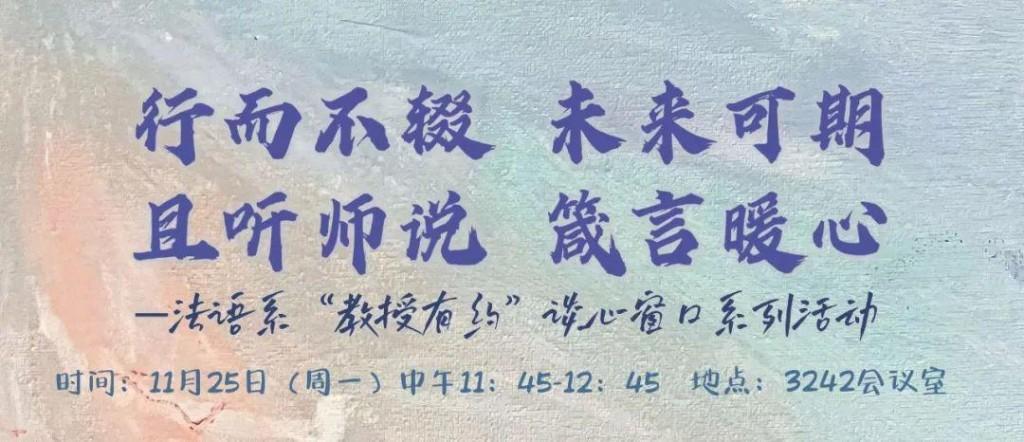 行而不辍 未来可期
且听师说 箴言暖心
—法语系“教授有约”谈心窗口系列活动
时间：11月25日（周一）中午11：45-12：45 地点：3242会议室